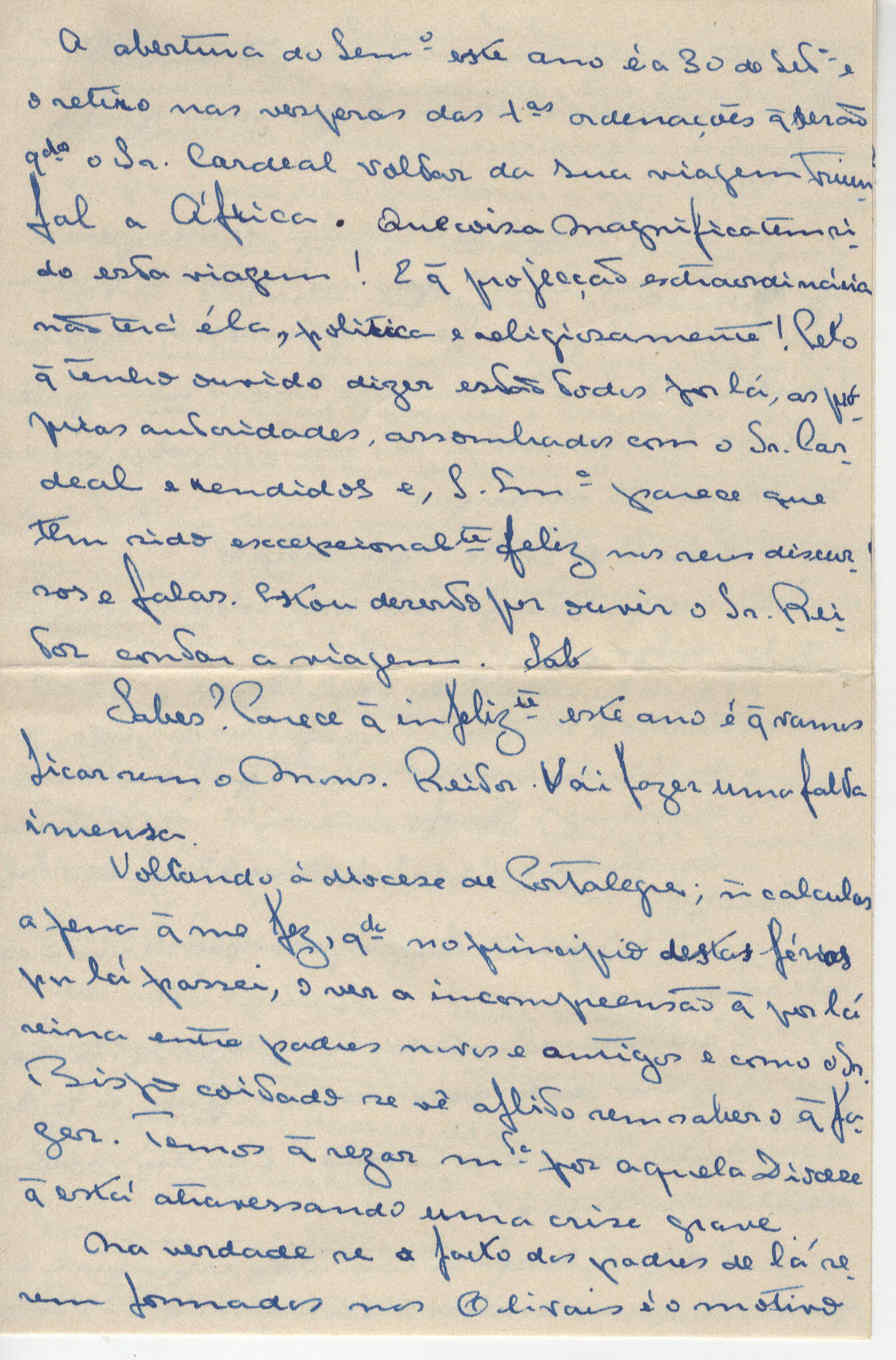 A abertura do Sem.º este ano é a 30 de Set.º e
o retiro nas vesperas das 1.as ordenações q̃ serão
qdo o Sr. Cardeal voltar da sua viagem triun-
fal a África. Que coisa magnifica tem si-
do esta viagem! E q̃ projecção extraordinária
não terá éla, politica e religiosamente! Pelo
q̃ tenho ouvido dizer estão todos por lá, as pró-
prias autoridades, assombrados com o Sr. Car-
deal e rendidos e, S. Em.ª parece que
tem sido excepcionalte feliz nos seus discur-
sos e falas. Estou deserto por ouvir o Sr. Rei-
tor contar a viagem. Sab
Sabes? Parece q̃ infelizte este ano é q̃ vamos
ficar sem o Mons. Reitor. Vái fazer uma falta
imensa.
Voltando à diocese de Portalegre; ñ calculas
a pena q̃ me fez, qdo no principio destas férias
por lá passei, o ver a incompreensão q̃ por lá
reina entre padres novos e antigos e como o Sr.
Bispo coitado se vê aflito sem saber o q̃ fa-
zer. Temos q̃ rezar mto por aquela Diocese
q̃ está atravessando uma crise grave
Na verdade se o facto dos padres de lá se-
rem formados nos Olivais é o motivo